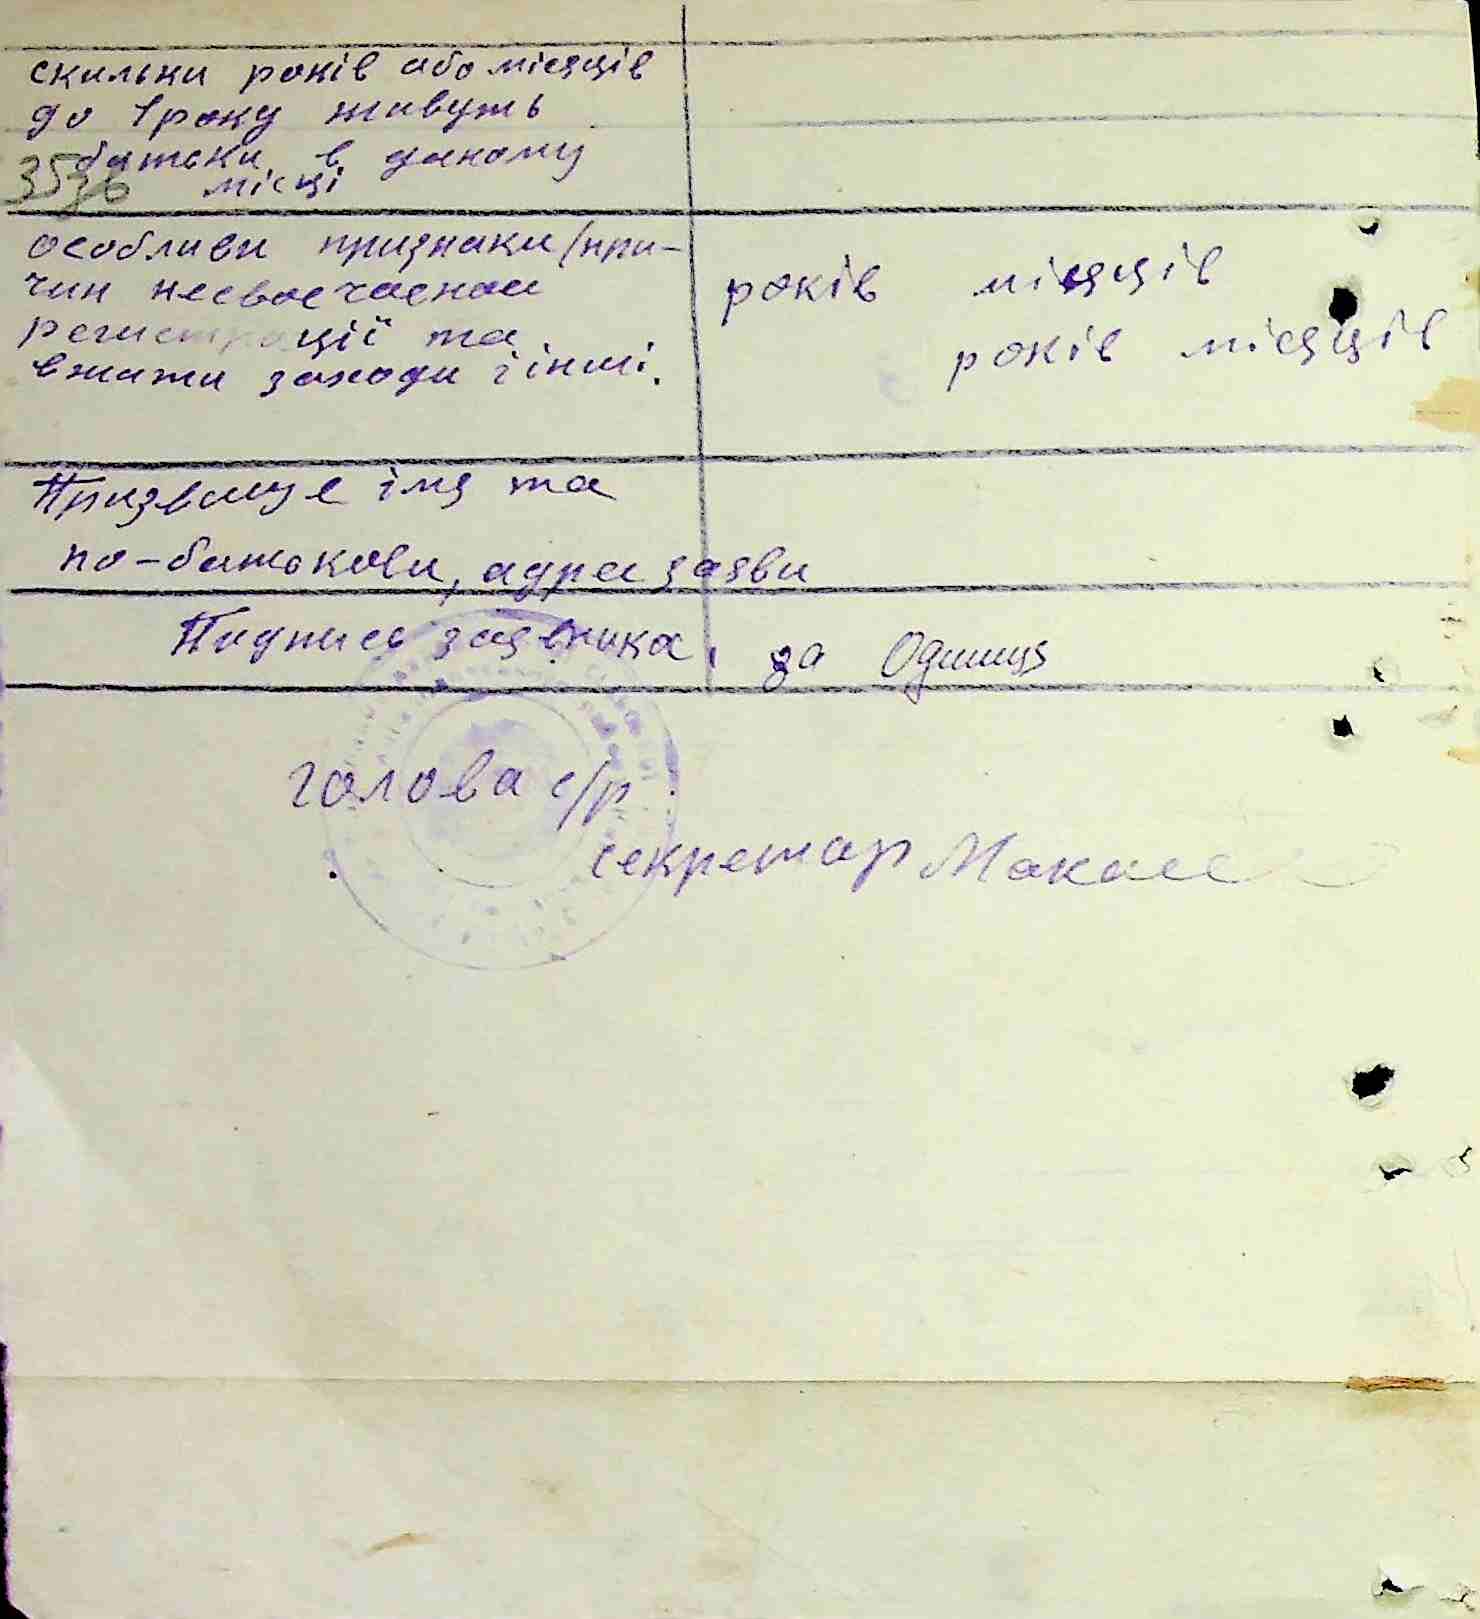 скильки років або місяців
до 1 року живуть
батьки в даному
353б місці
особливи признаки /при-
чин несвоечасной
регистрації та
вжити заходи і інші.
років місяців
років місяців
Призвище імя та
по-батькови, адреса заяви
Пидпись заявника, за Одинця
голова с/р
секретар